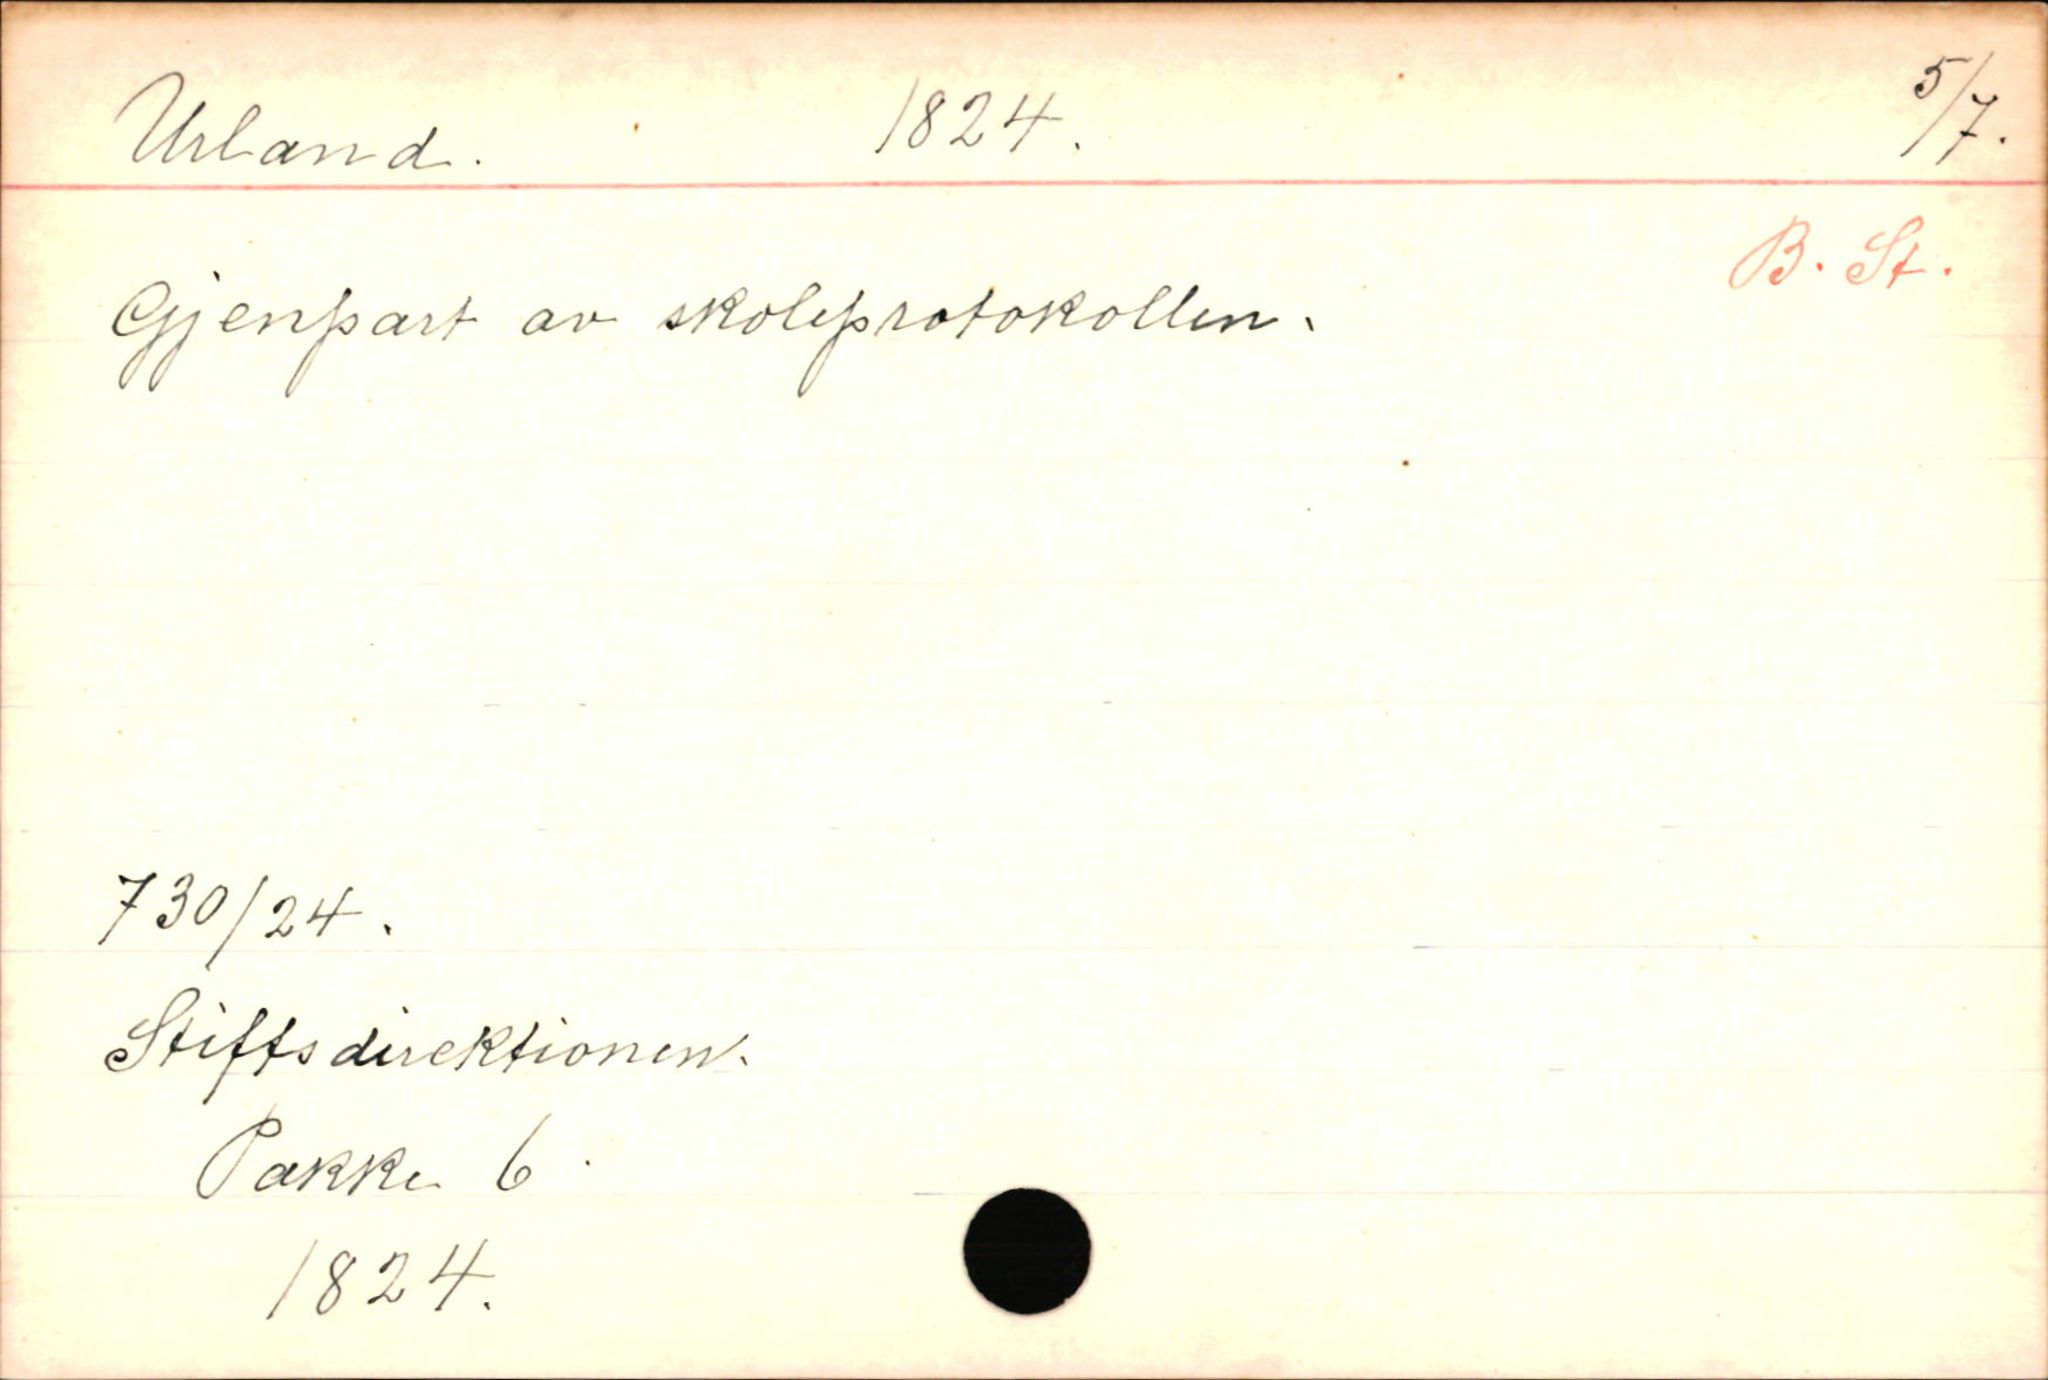 Urland. 1824. 5/7.
B. St.
Gjenpart av skoleprotokollen.
730/24.
Stiftsdirektionen.
Pakke 6.
1824.